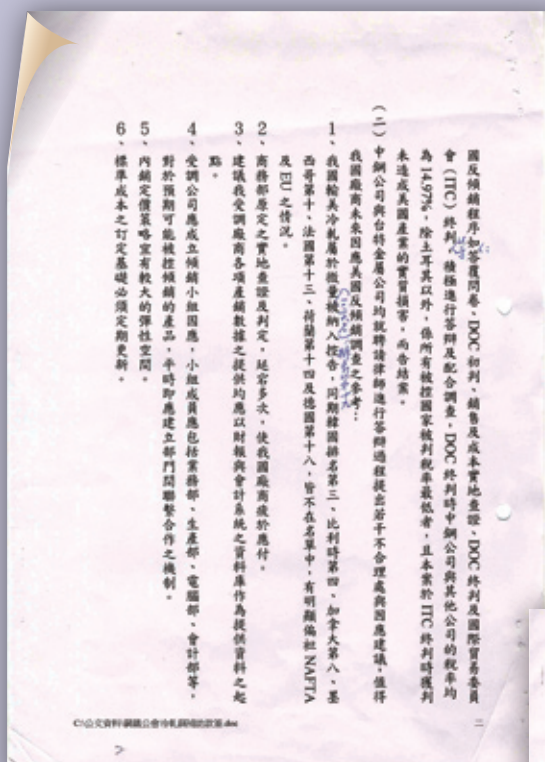 國反傾銷程序如答覆問卷、DOC 初判、銷售及成本實地查證、DOC 終判及國際貿易委員
會(ITC)終判,積極進行答辯及配合調查,DOC 終判時中鋼公司與其他公司的稅率均
為 14.97%,除土耳其以外,係所有被控國家被判稅率最低者,且本案於 ITC 終判時獲判
未造成美國產業的實質損害,而告結案。
(二)中鋼公司與台特金屬公司均就聘請律師進行答辯過程提出若干不合理處與因應建議,值得
我國廠商未來因應美國反傾銷調查之參考:
1、我國輸美冷軋屬於微量被納入控告,同期韓國排名第三、比利時第四、加拿大第八、墨
西哥第十、法國第十三、荷蘭第十四及德國第十八,皆不在名單中,有明顯偏袒 NAFTA
及 EU 之情況。
2、商務部原定之實地查證及判定,延宕多次,使我國廠商疲於應付。
3、建議我受調廠商各項產銷數據之提供均應以財報與會計系統之資料庫作為提供資料之起
點。
4、受調公司應成立傾銷小組因應,小組成員應包括業務部、生產部、電腦部、會計部等,
對於預期可能被控傾銷的產品,平時即應建立部門間聯繫合作之機制。
5、內銷定價策略宜有較大的彈性空間。
6、標準成本之訂定基礎必須定期更新。
二